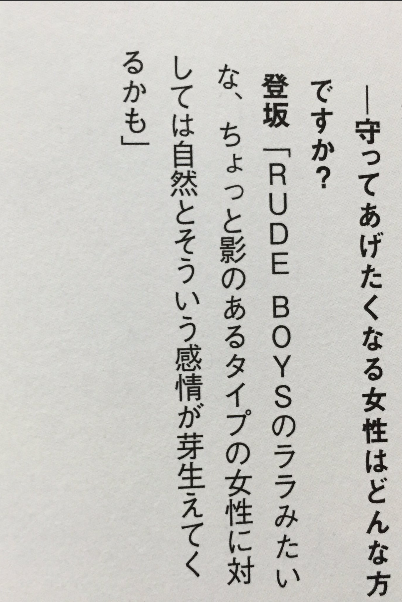 ―守ってあげたくなる女性はどんな方
ですか？
登坂「RUDE BOYSのララみたい
な、ちょっと影のあるタイプの女性に対
しては自然とそういう感情が芽生えてく
るかも」